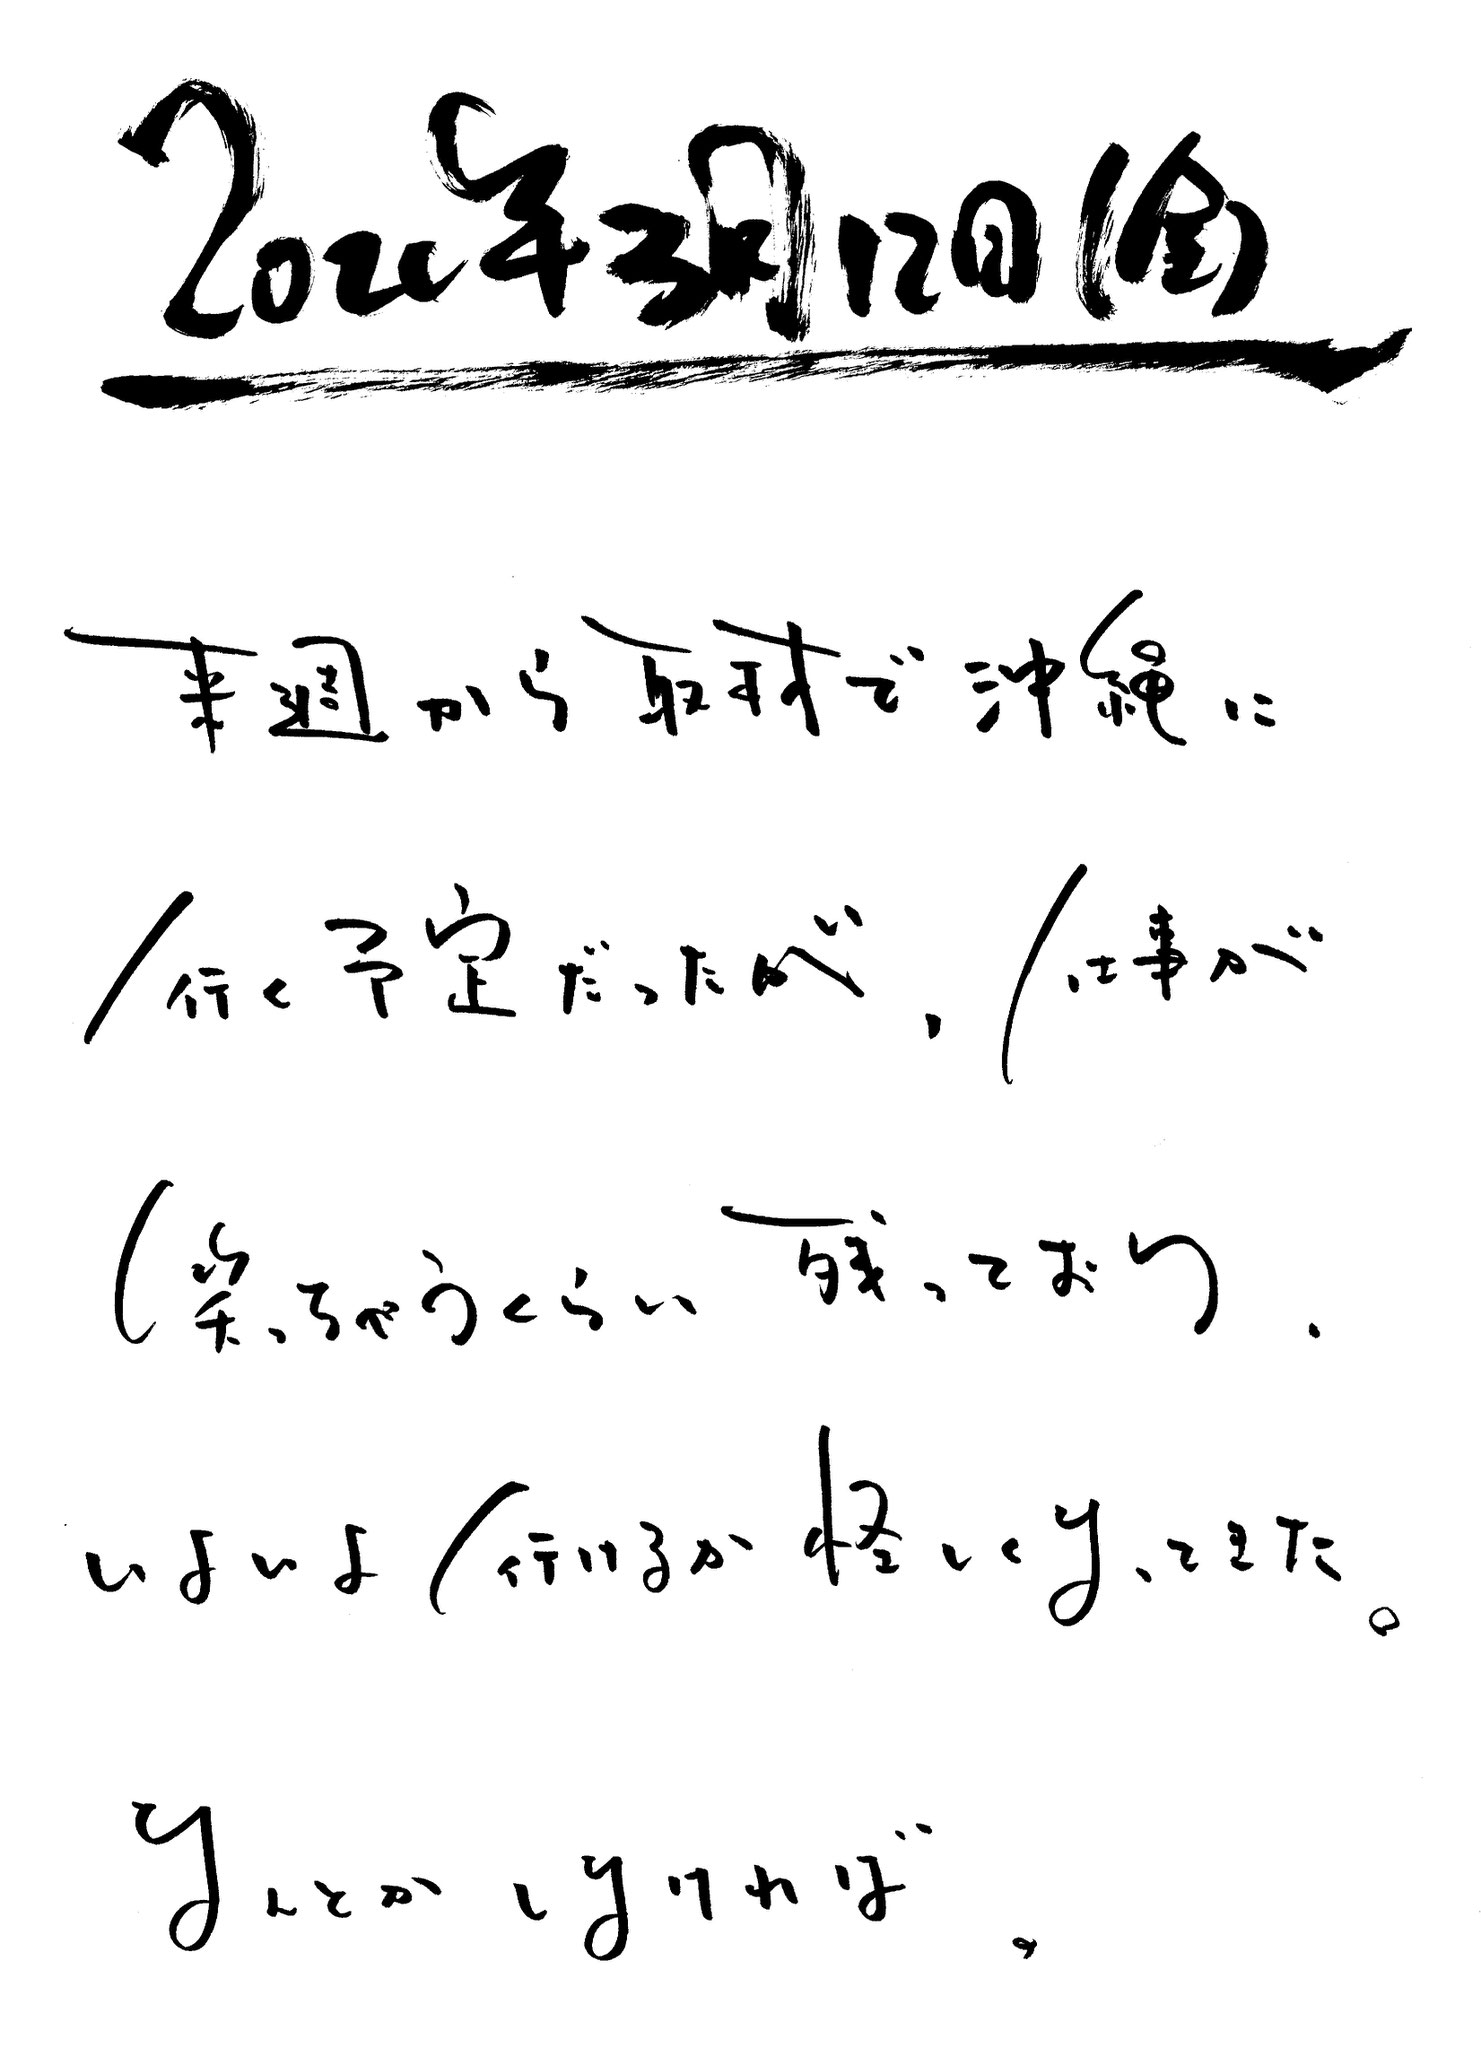 2021年3月12日(金)
来週から取材で沖縄に
行く予定だったが、仕事が
笑っちゃうくらい残っており、
いよいよ行けるか怪しくなってきた。
なんとかしなければ。